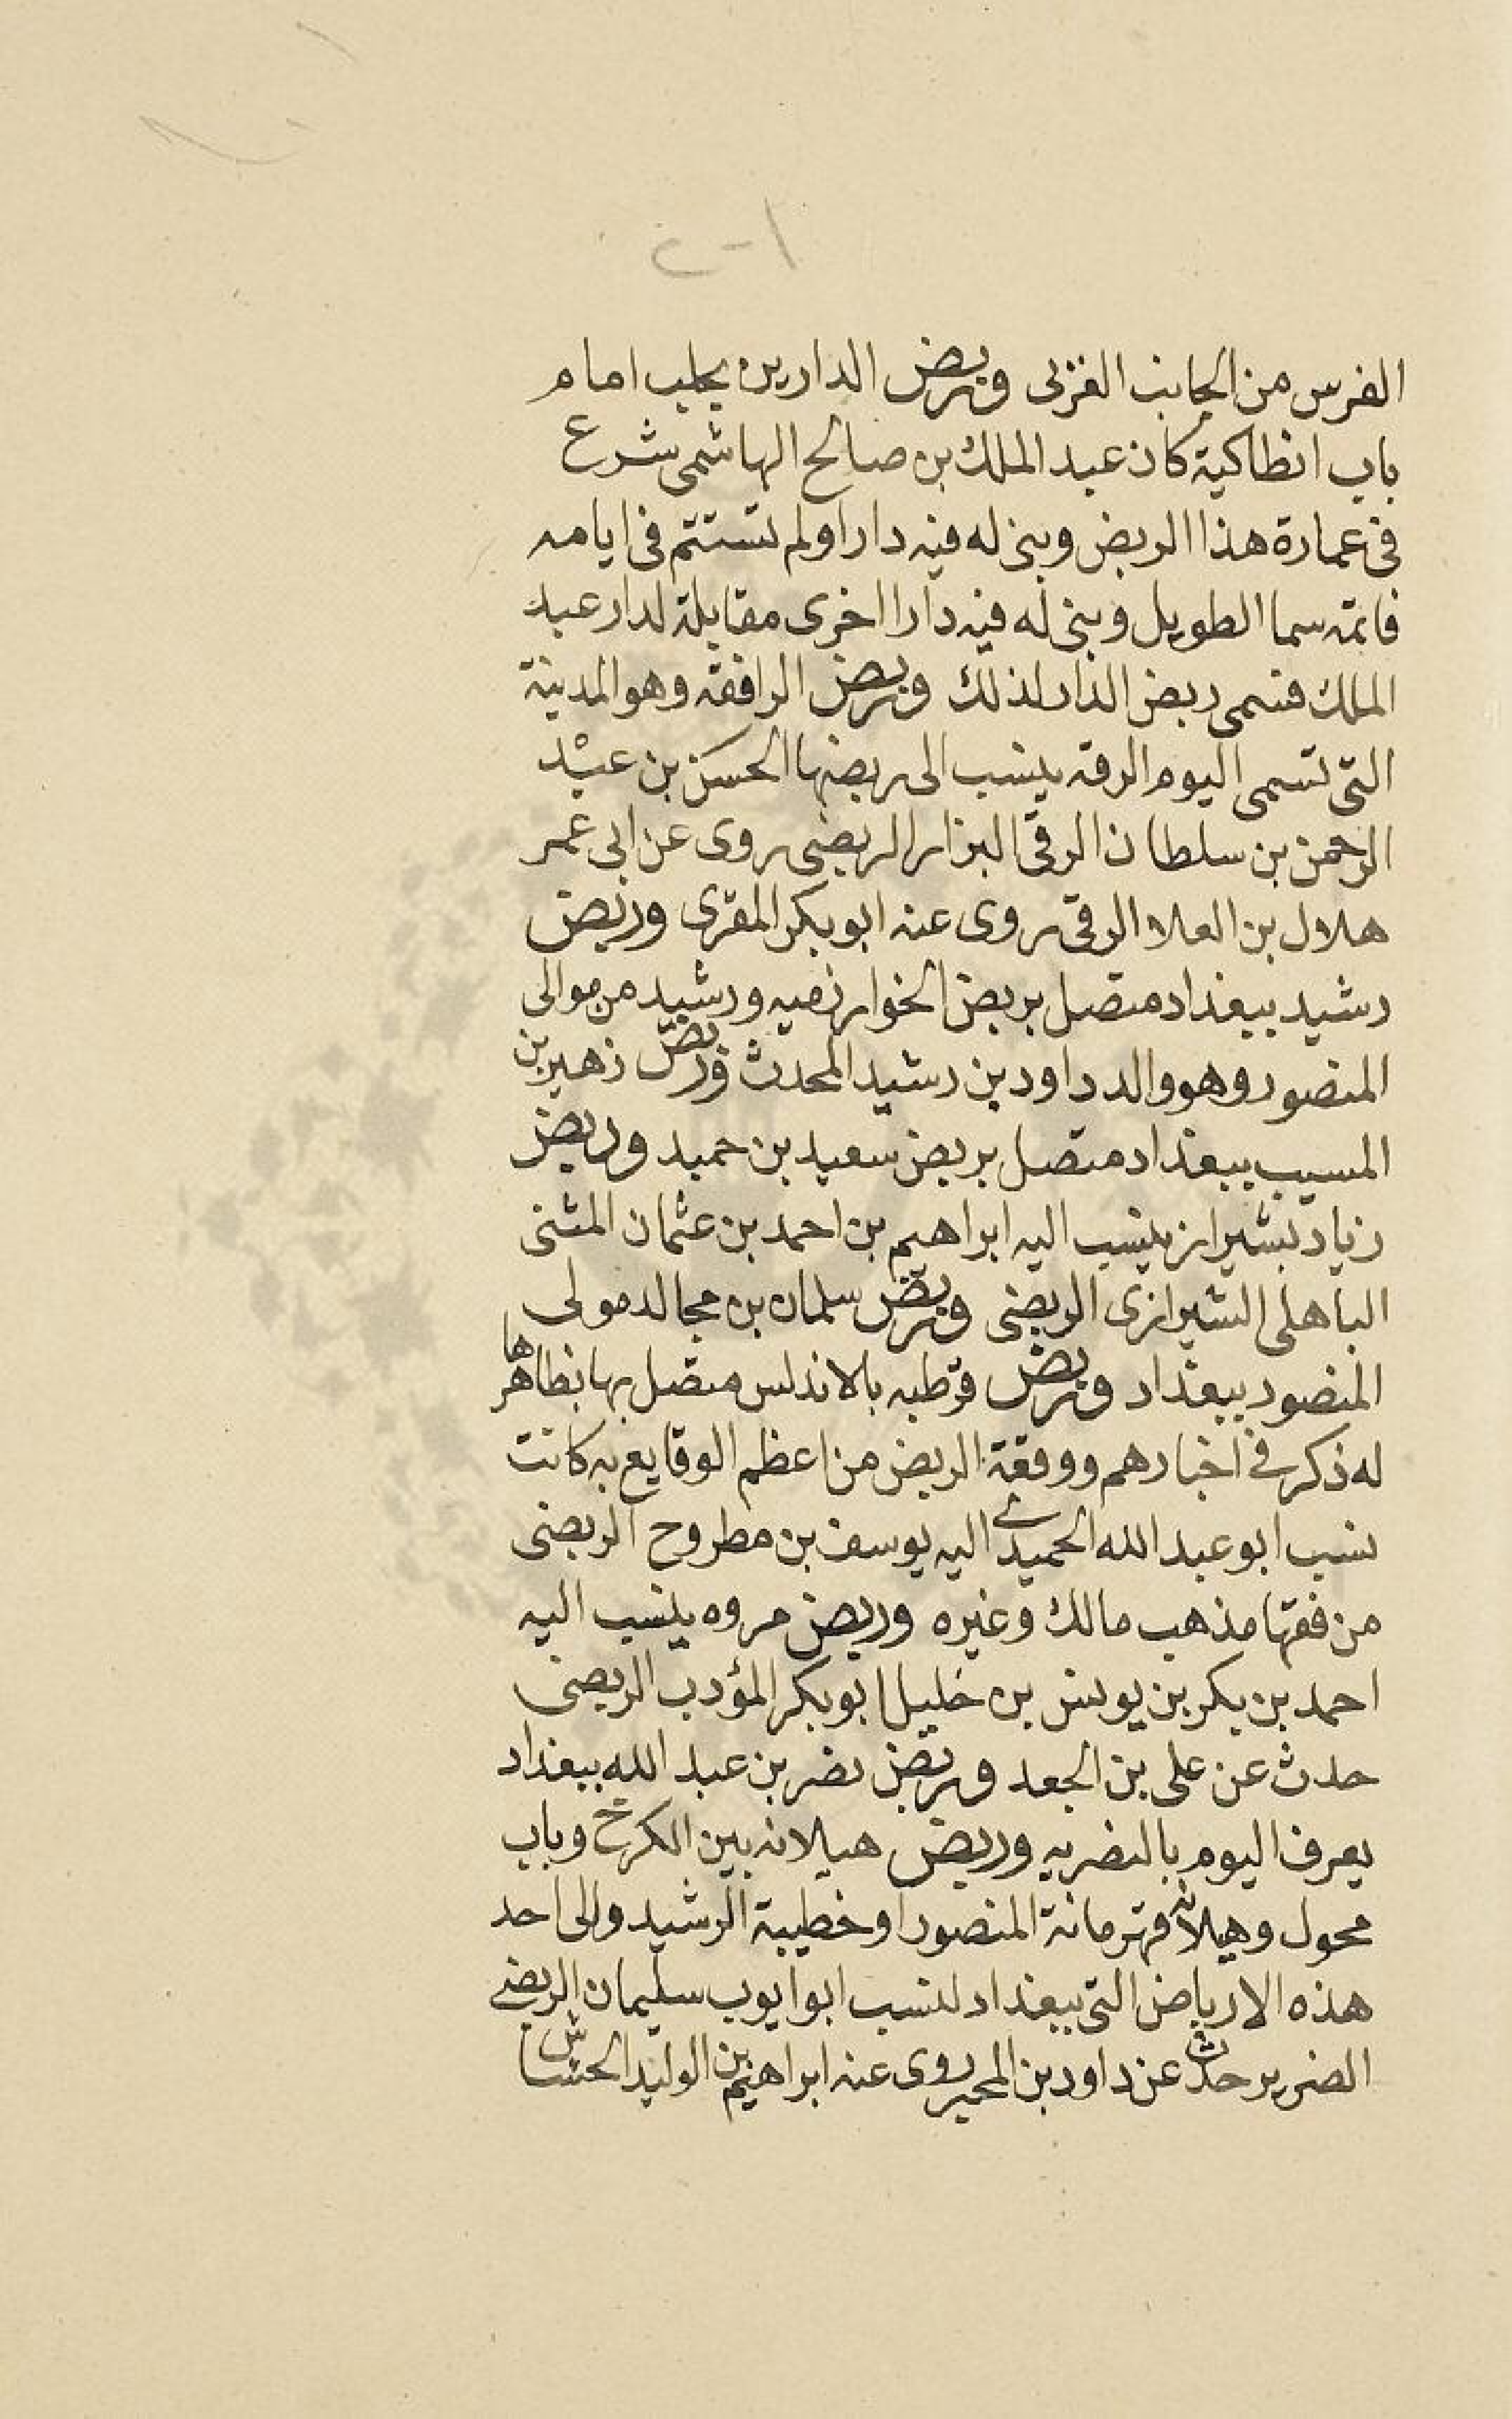 الفرس من الجانب الغربى وربض الدارين بحلب امام
باب انطاكية كان عبد الملك بن صالح الهاشمى شرع
فى عمارة هذا الربض وبنى له فيه دارا ولم تستتم فى ايامه
فاتمه سما الطويل وبنى له فيه دارا اخرى مقابلة لدار عبد
الملك فسمى ربض الدار لذلك وربض الرافقه وهو المدينة
التى تسمى اليوم الرقه ينسب الى ربضها الحسن بن عبد
الرحمن بن سلطان الرقى البزار الربضى روى عن ابى عمر
هلال بن العلا الرقى روى عنه ابو بكر المقرى وربض
رشيد ببغداد متصل بربض الخوارزميه ورشيد من موالى
المنصور وهو والد داود بن رشيد المحدث وربض زهير بن
المسيب ببغداد متصل بربض سعيد بن حميد وربض
زياد بشيراز ينسب اليه ابراهيم بن احمد بن عثمان المثنى
الباهلى الشيرازى الربضى وربض سلمان بن مجالد مولى
المنصور ببغداد وربض قرطبه بالاندلس متصل بها بظاهرها
له ذكر فى اخبارهم ووقعة الربض من اعظم الوقايع به كانت
نسب ابو عبد الله الحميدى اليه يوسف بن مطروح الربضى
من فقها مذهب مالك وغيره وربض مروه ينسب اليه
احمد بن بكر بن يونس بن خليل ابو بكر المؤدب الربضى
حدث عن على بن الجعد وربض نصر بن عبد الله ببغداد
يعرف اليوم بالنصريه وربض هيلانه بين الكرخ وباب
محول وهيلانه قهرمانة المنصور او خطيبة الرشيد والى احد
هذه الارباض التى ببغداد لنسب ابو ايوب سليمان الربضى
الضرير حدث عن داود بن المحبر روى عنه ابراهيم بن الوليد الحشاش